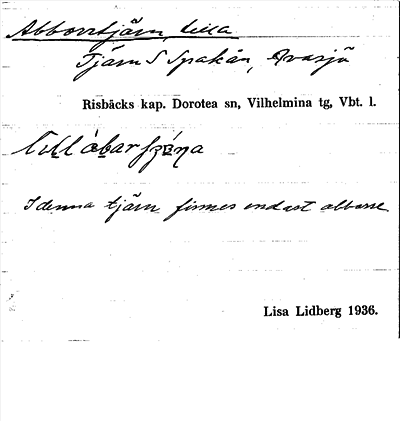 Abborrtjärn, lilla
Tjärn S Spakån, Avasjö
Risbäcks kap. Dorotea sn, Vilhelmina tg, Vbt. l.
I denna tjärn finnes endast abborre
Lisa Lidberg 1936.